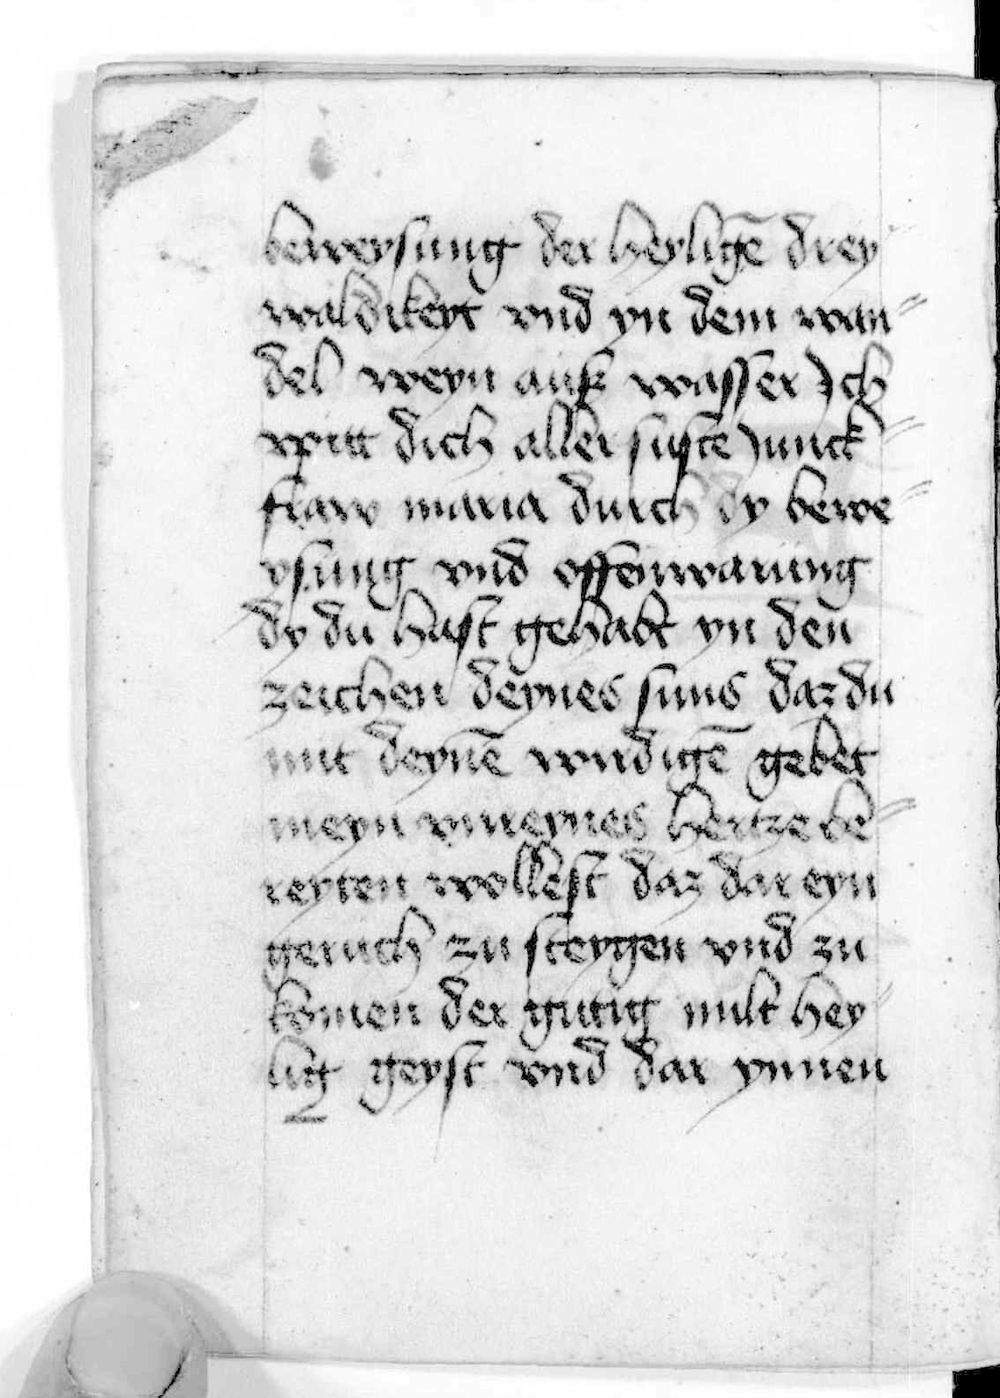 beweysung der heyligē drey
waldikeyt vnd yn dem wan⸗
del weyn auß wasser Jch
pitt dich aller suste Junck⸗
fraw maria durch dy bewe⸗
ysung vnd offenwarung
dy du hast gehabt yn den
zeichen deynes suns daz du
mit deynē wirdigē gebet
meyn vmeynes hertze be⸗
reyten wollest daz dar eyn
geruch zu steygen vnd zu
komen der gutig milt hey⸗
lig geyst vnd dar ynnen